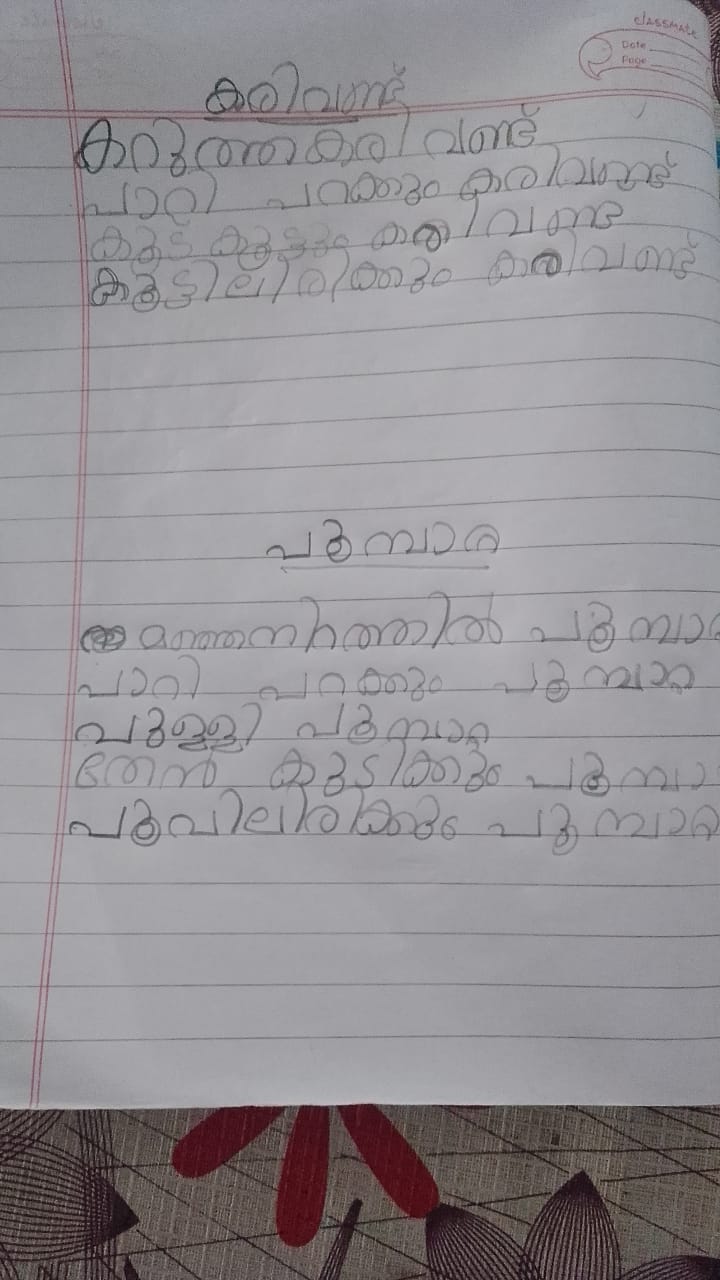 classmate
Date
Page
കരിവണ്ട്
കറുത്ത കരിവണ്ട്
പാറി പറക്കും കരിവണ്ട്
കൂട് കൂട്ടും കരിവണ്ട്
കൂട്ടിലിരിക്കും കരിവണ്ട്
പൂമ്പാറ്റ
പൂമ്പാറ്റ
പാറി പറക്കും പൂമ്പാറ്റ
പുള്ളി പൂമ്പാറ്റ
തേൻ കുടിക്കും
പൂവിലിരിക്കും പൂമ്പാറ്റ